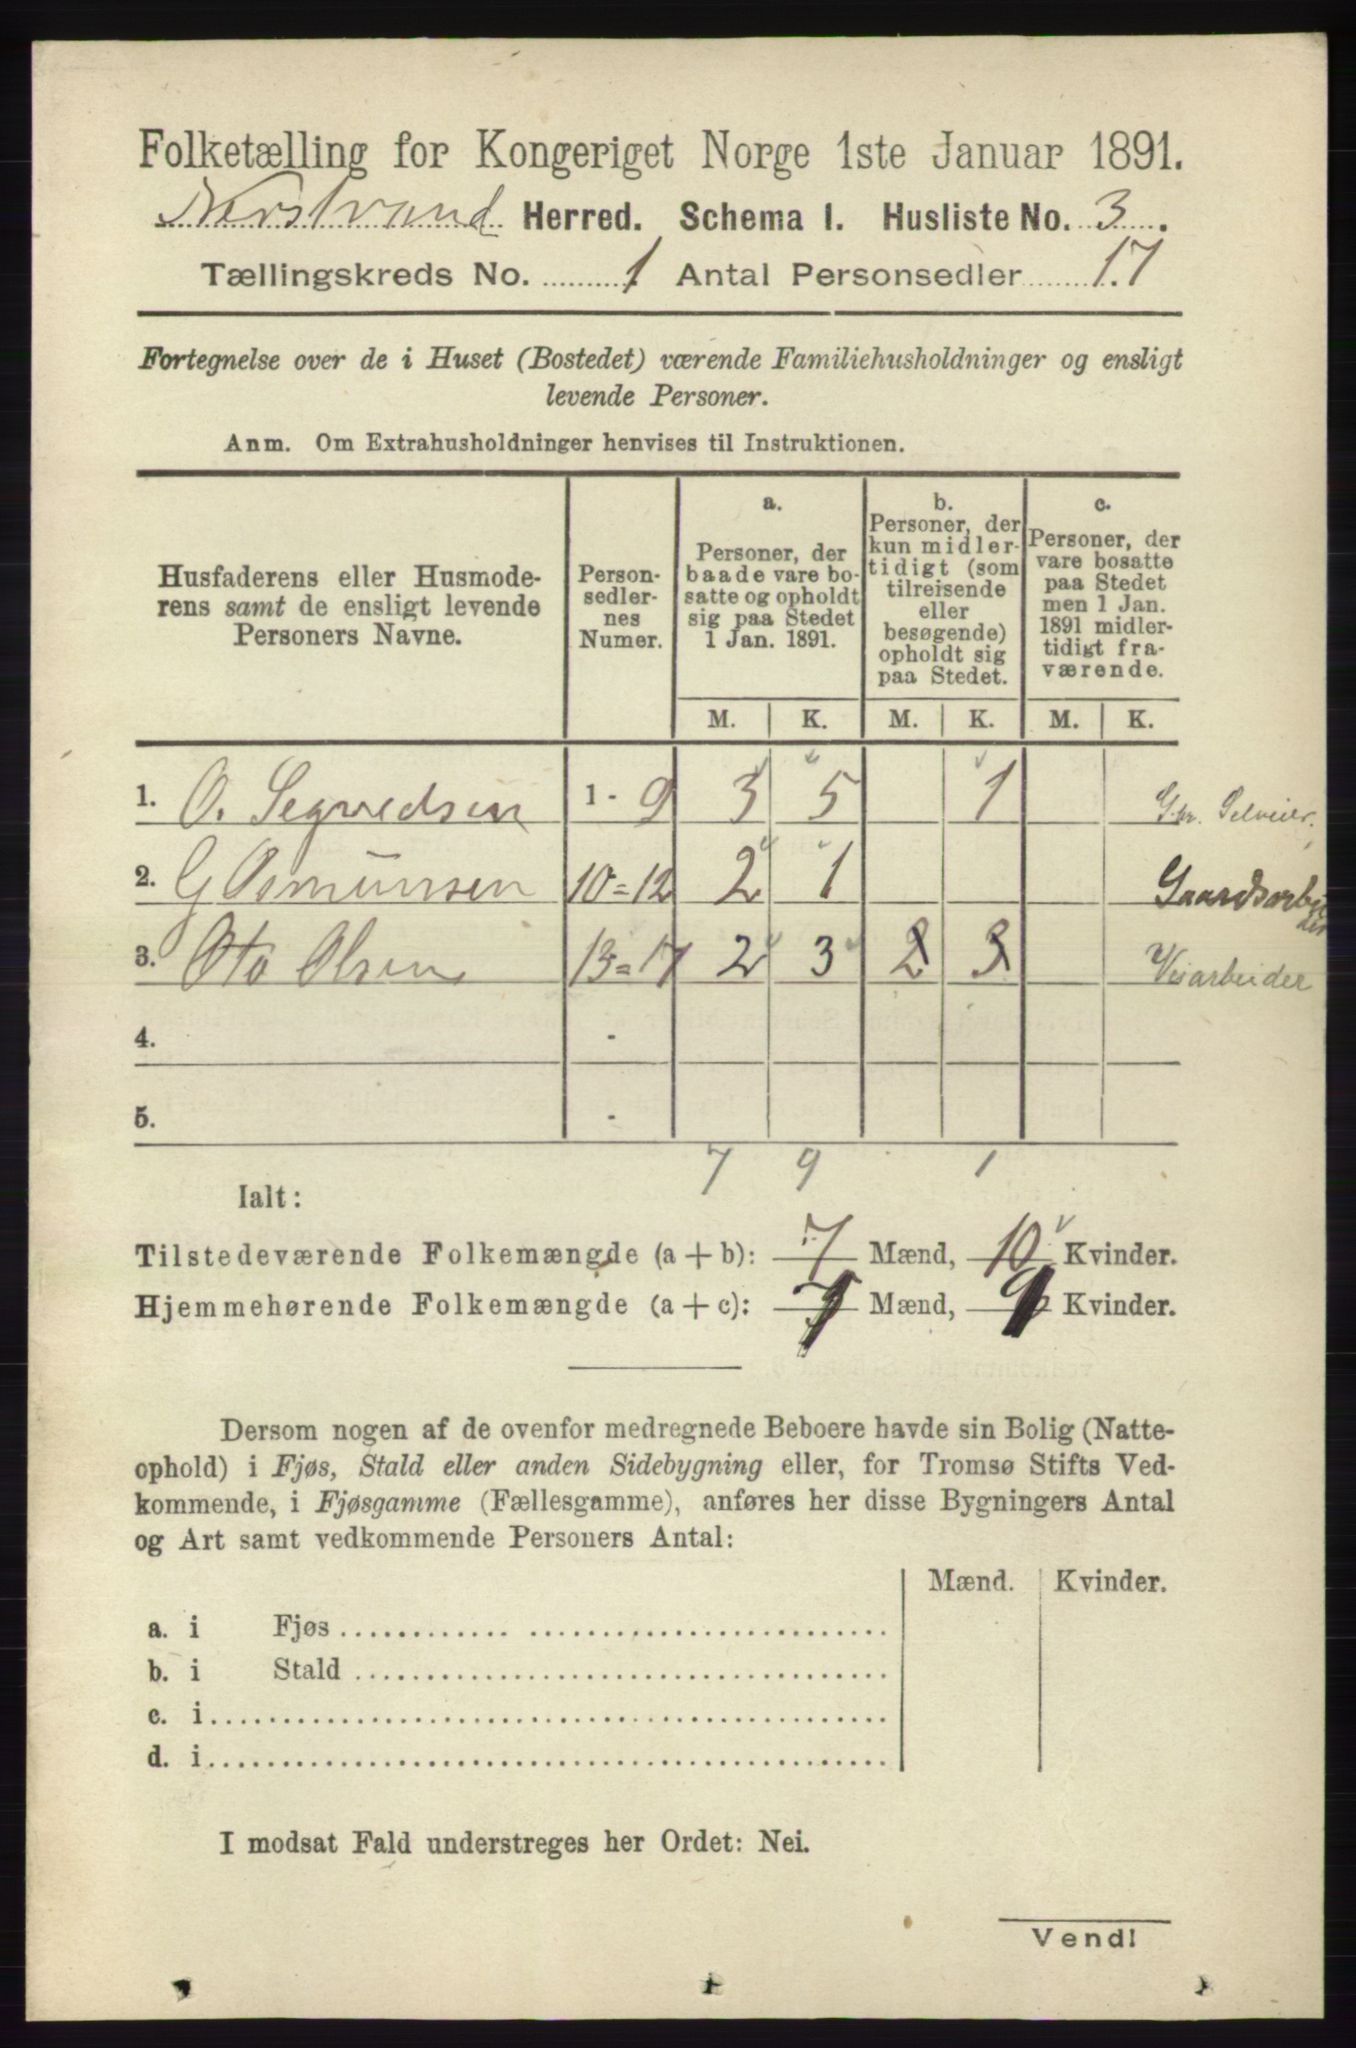 Folketælling for Kongeriget Norge 1ste Januar 1891.
Nerstrand Herred. Schema 1. Husliste No. 3.
Tællingskreds No. 1 Antal Personsedler 17
Fortegnelse over de i Huset (Bostedet) værende Familiehusholdninger og ensligt
levende Personer.
Anm. Om Extrahusholdninger henvises til Instruktionen.
Husfaderens eller Husmode-
rens samt de ensligt levende
Personers Navne.
Person-
sedler-
nes
Numer.
a.
Personer, der
baade vare bo-
satte og opholdt
sig paa Stedet
1 Jan. 1891.
b.
Personer, der
kun midler-
tidigt (som
tilreisende
eller
besøgende)
opholdt sig
paa Stedet.
c.
Personer, der
vare bosatte
paa Stedet
men 1 Jan.
1891 midler-
tidigt fra-
værende.
M. K. M. K. M. K.
1. O. Segvedsen 1 - 9 3 5 1 Gbr. Selveier.
2. G Osmunsen 10=12 2 1 Gaardsarbei
der
3. Oto Olsen 13=17 2 3 2 3 Veiarbeider
4. -
5. -
7 9 1
Ialt:
Tilstedeværende Folkemængde (a + b): 7 Mænd, 10 Kvinder.
Hjemmehørende Folkemængde (a + c): 7 Mænd, 9 Kvinder.
Dersom nogen af de ovenfor medregnede Beboere havde sin Bolig (Natte-
ophold) i Fjøs, Stald eller anden Sidebygning eller, for Tromsø Stifts Ved-
kommende, i Fjøsgamme (Fællesgamme), anføres her disse Bygningers Antal
og Art samt vedkommende Personers Antal:
Mænd. Kvinder.
a. i Fjøs
b. i Stald
c. i
d. i
I modsat Fald understreges her Ordet: Nei.
Vend!